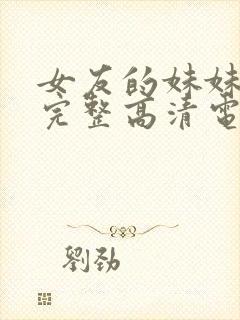 女友的妹妹
完整高清電
劉劲